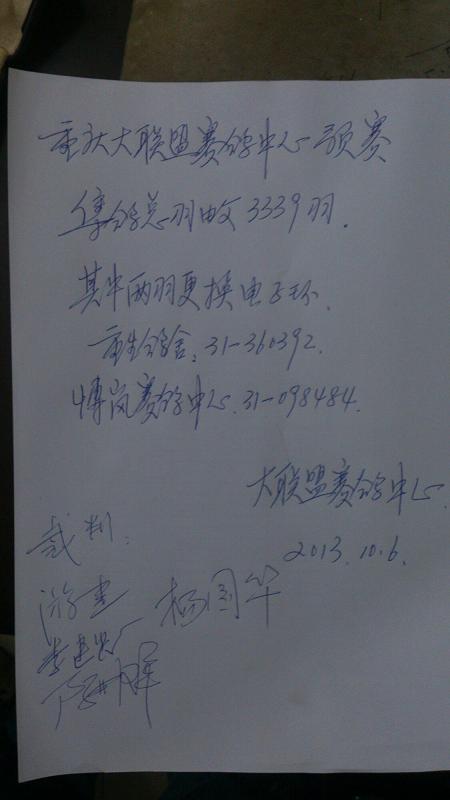 重庆大联盟赛鸽中心预赛
集鸽总羽收3339羽.
其中两羽更换电子环.
重生鸽舍:31-360392.
博岚赛鸽中心.31-098484.
大联盟赛鸽中心.
2013.10.6.
裁判:
杨国华